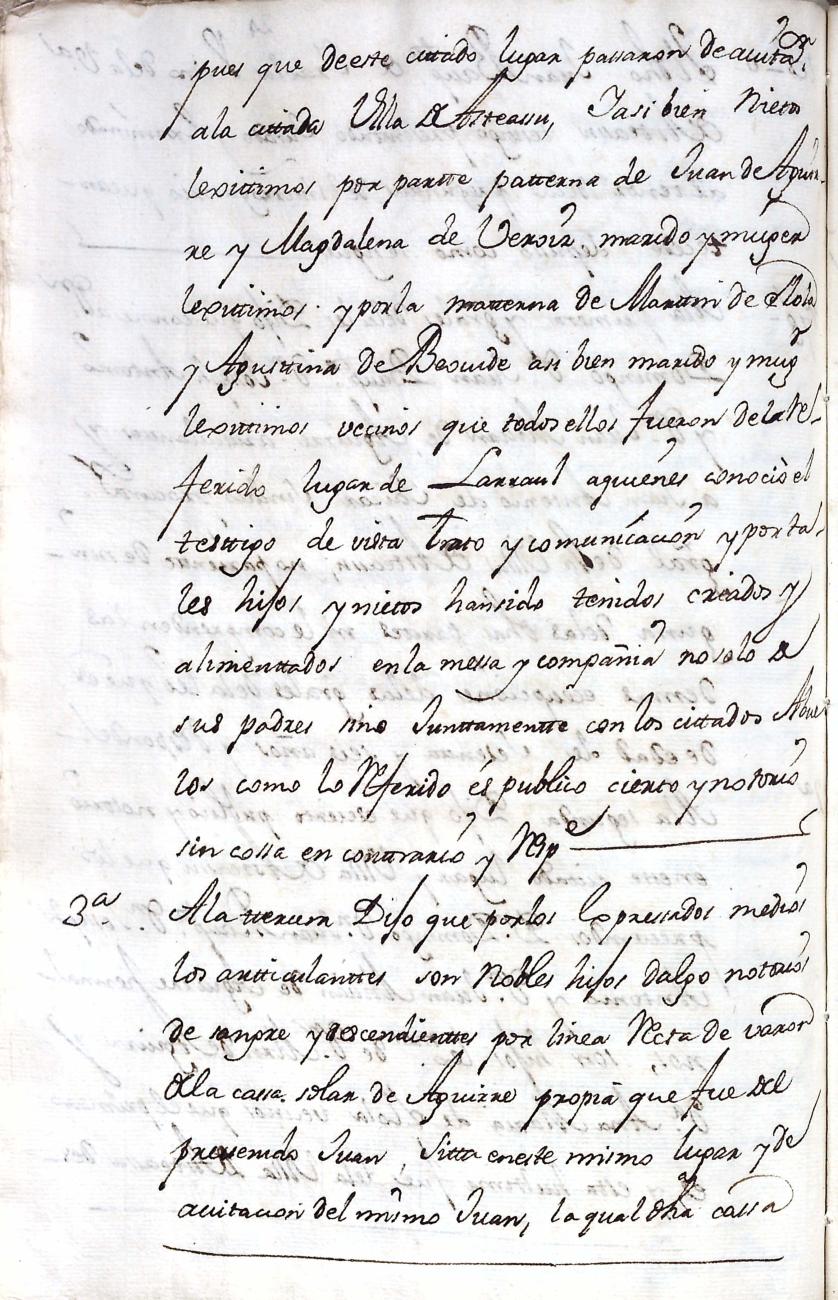 pues que deeste cittado lugar passaron de auita,on
ala cittada Villa de Asteassu, Iasi bien Nietos
lexittimos por partte patterna de Juan de Aguir-
re y Magdalena de Veroiz, marido y muger
lexittimos y por la matterna de Marttin de Olola
y Agusttina de Beouide asi bien marido y mugr
lexittimos vecinos que todos ellos fueron de la Re-
ferido lugar de Larraul aquienes conociò el
testtigo de vista trato y comunicacion y por ta-
les hijos y nietos hansido tenidos criados y
alimenttados en la messa y compañia no solo de
sus padres sino Junttamentte con los cittados Abue
los como lo Referido es publico cierto y notorio
sin cossa en conttrario y Respde
3a Ala tercera Dijo que por los Expressados medios
los artticulanttes son Nobles hijos dalgo notorios
de sangre y descendienttes por linea Recta de varon
de la cassa solar de Aguirre propia que fue del
prevenido Juan, sitta en este mismo lugar y de
auitacion del mismo Juan, la qual dha cassa